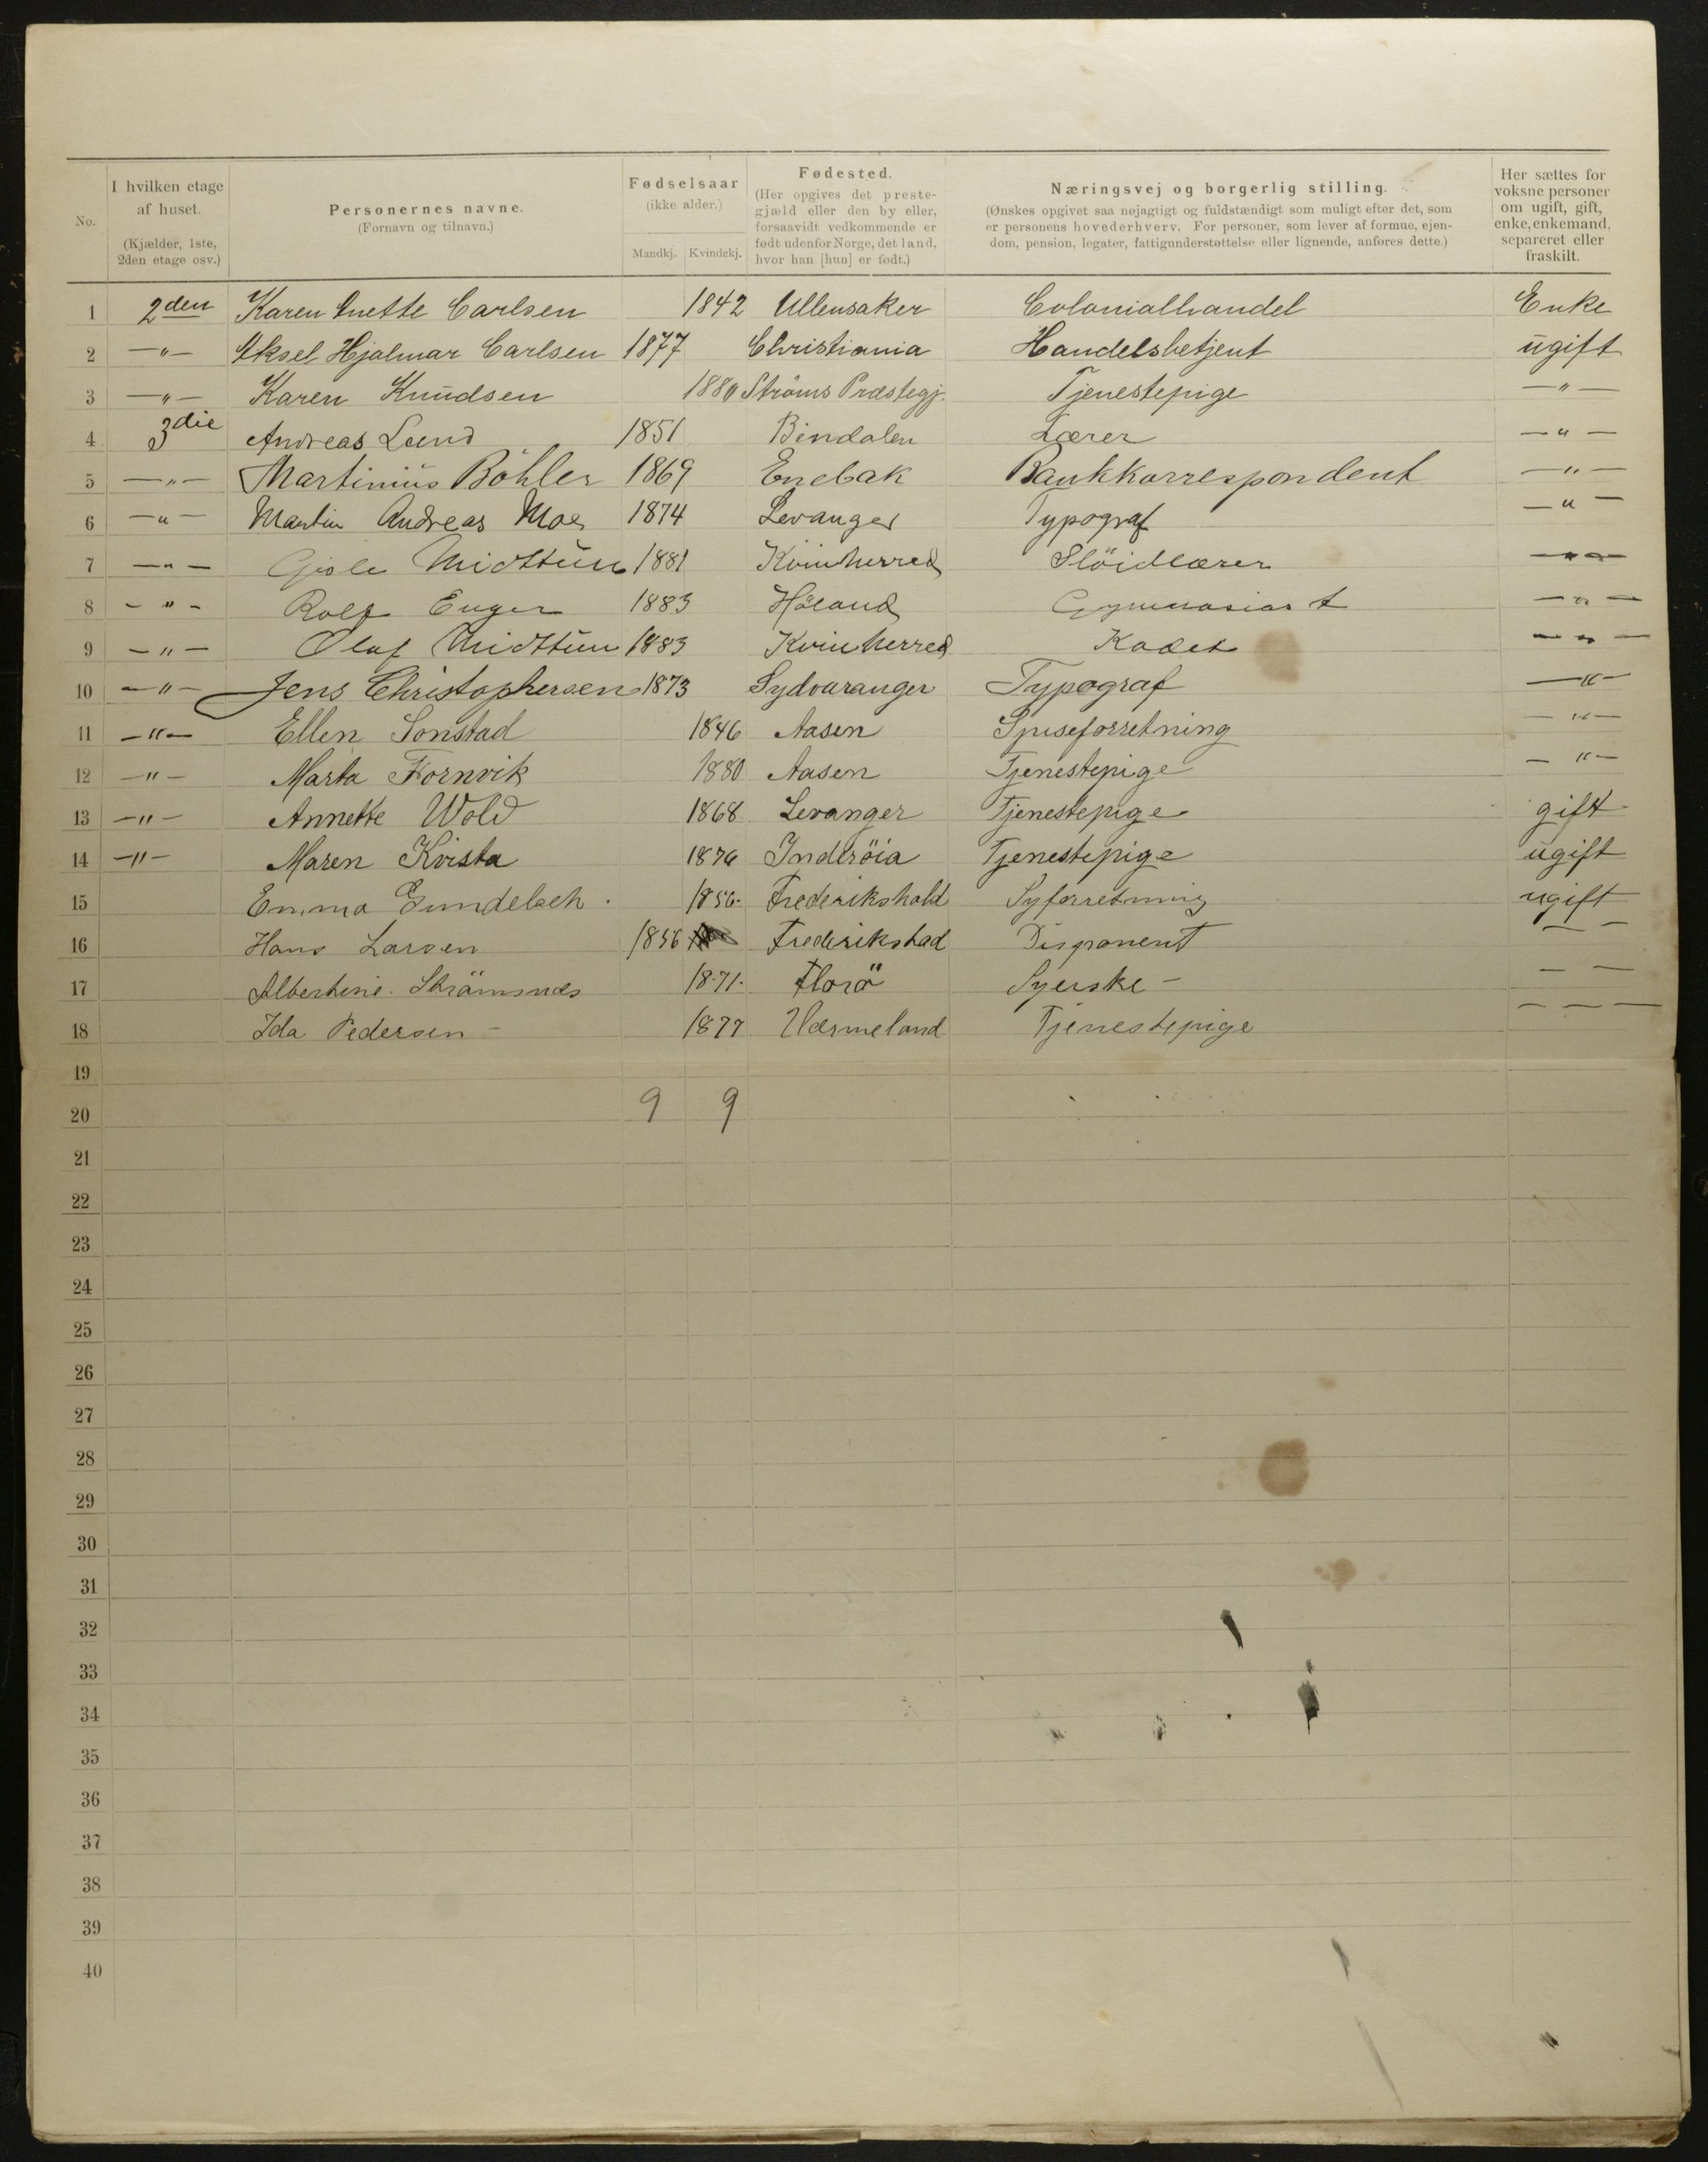 No.
I hvilken etage af huset. (Kjælder, 1ste, 2den etage osv.)
Personernes navne. (Fornavn og tilnavn.)
Fødselsaar (ikke alder.) Mandkj. Kvindekj.
Fødested. (Her opgives det preste- gjæld eller den by eller, forsaavidt vedkommende er født udenfor Norge, det land, hvor han [hun] er født.)
Næringsvej og borgerlig stilling. (Ønskes opgivet saa nøjagtigt og fuldstændigt som muligt efter det, som er personens hovederhverv. For personer, som lever af formue, ejen- dom, pension, legater, fattigunderstøttelse eller lignende, anføres dette.)
Her sættes for voksne personer om ugift, gift, enke, enkemand, separeret eller fraskilt.
1 2den Karen Anette Carlsen 1842 Ullensaker Colonialhandel Enke
2 —"— Aksel Hjalmar Carlsen 1877 Christiania Handelsbetjent ugift
3 —"— Karen Knudsen 1880 Strøms Præstegj. Tjenestepige —"—
4 3die Andreas Lund 1851 Bindalen Lærer —"—
5 —"— Martinius Böhler 1869 Enebak Bankkorrespondent —"—
6 —"— Martin Andreas Moe 1874 Levanger Typograf —"—
7 —"— Gisle Midttun 1881 Kvinherred Slöidlærer —"—
8 —"— Rolf Enger 1883 Höland Gymnasiast —"—
9 —"— Olaf Midttun 1883 Kvinherred Kadet —"—
10 —"— Jens Christophersen 1873 Sydvaranger Typograf —"—
11 —"— Ellen Sonstad 1846 Aasen Spiseforretning —"—
12 —"— Marta Fornvik 1880 Aasen Tjenestepige —"—
13 —"— Annette Wold 1868 Levanger Tjenestepige gift
14 —"— Maren Kvista 1876 Inderöia Tjenestepige ugift
15 Emma Gundelach 1856 Frederikshald Syforretning ugift
16 Hans Larsen 1856 Frederikstad Disponent — —
17 Albertine Strömsnes 1871 Florö Syerske — — —
18 Ida Pedersen — 1877 Værmeland Tjenestepige — — —
19
20 9 9
21
22
23
24
25
26
27
28
29
30
31
32
33
34
35
36
37
38
39
40